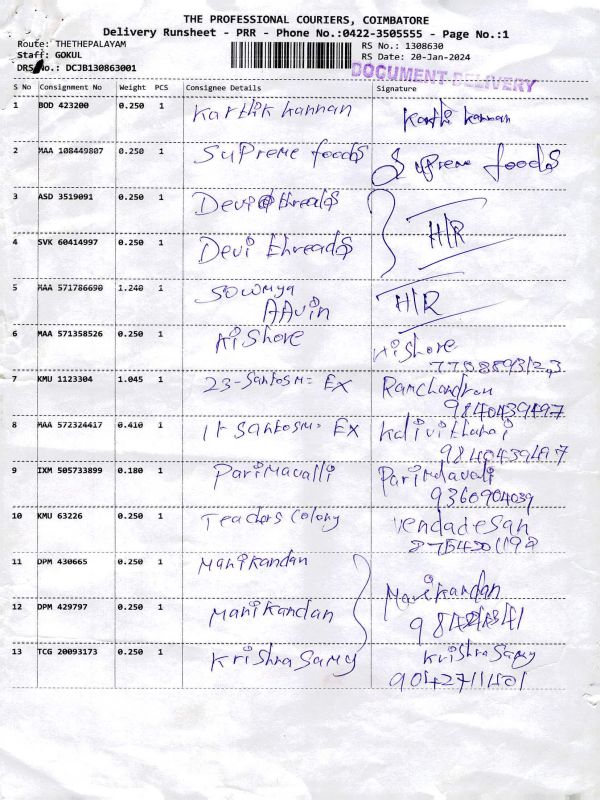 THE PROFESSIONAL COURIERS, COIMBATORE
Delivery Runsheet - PRR - Phone No.:0422-3505555 - Page No.:1
Route: THETHEPALAYAM
RS No.: 1308630
Staff: GOKUL
RS Date: 20-Jan-2024
DRS No.: DCJB130863001
DOCUMENT DELIVERY
S No Consignment No Weight PCS Consignee Details Signature
1 BOD 423200 0.250 1 Karthik kannan Karthi kannan
2 MAA 108449807 0.250 1 Supreme foods Supreme foods
3 ASD 3519091 0.250 1 Devi threads
4 SVK 60414997 0.250 1 Devi threads H/R
5 MAA 571786690 1.240 1 Sowmya H/R
AAvin
6 MAA 571358526 0.250 1 Kishore Kishore
7 KMU 1123304 1.045 1 23-Santosm= EX Ramchandran
9840439497
8 MAA 572324417 0.410 1 Santosm= EX
9840439497
9 IXM 505733899 0.180 1 Parimavalli
9360904039
10 KMU 63226 0.250 1 Teaders Colony Vendadesan
11 DPM 430665 0.250 1 Manikandan
12 DPM 429797 0.250 1 Manikandan Manikandan
13 TCG 20093173 0.250 1 Krishna Samy Krishna Samy